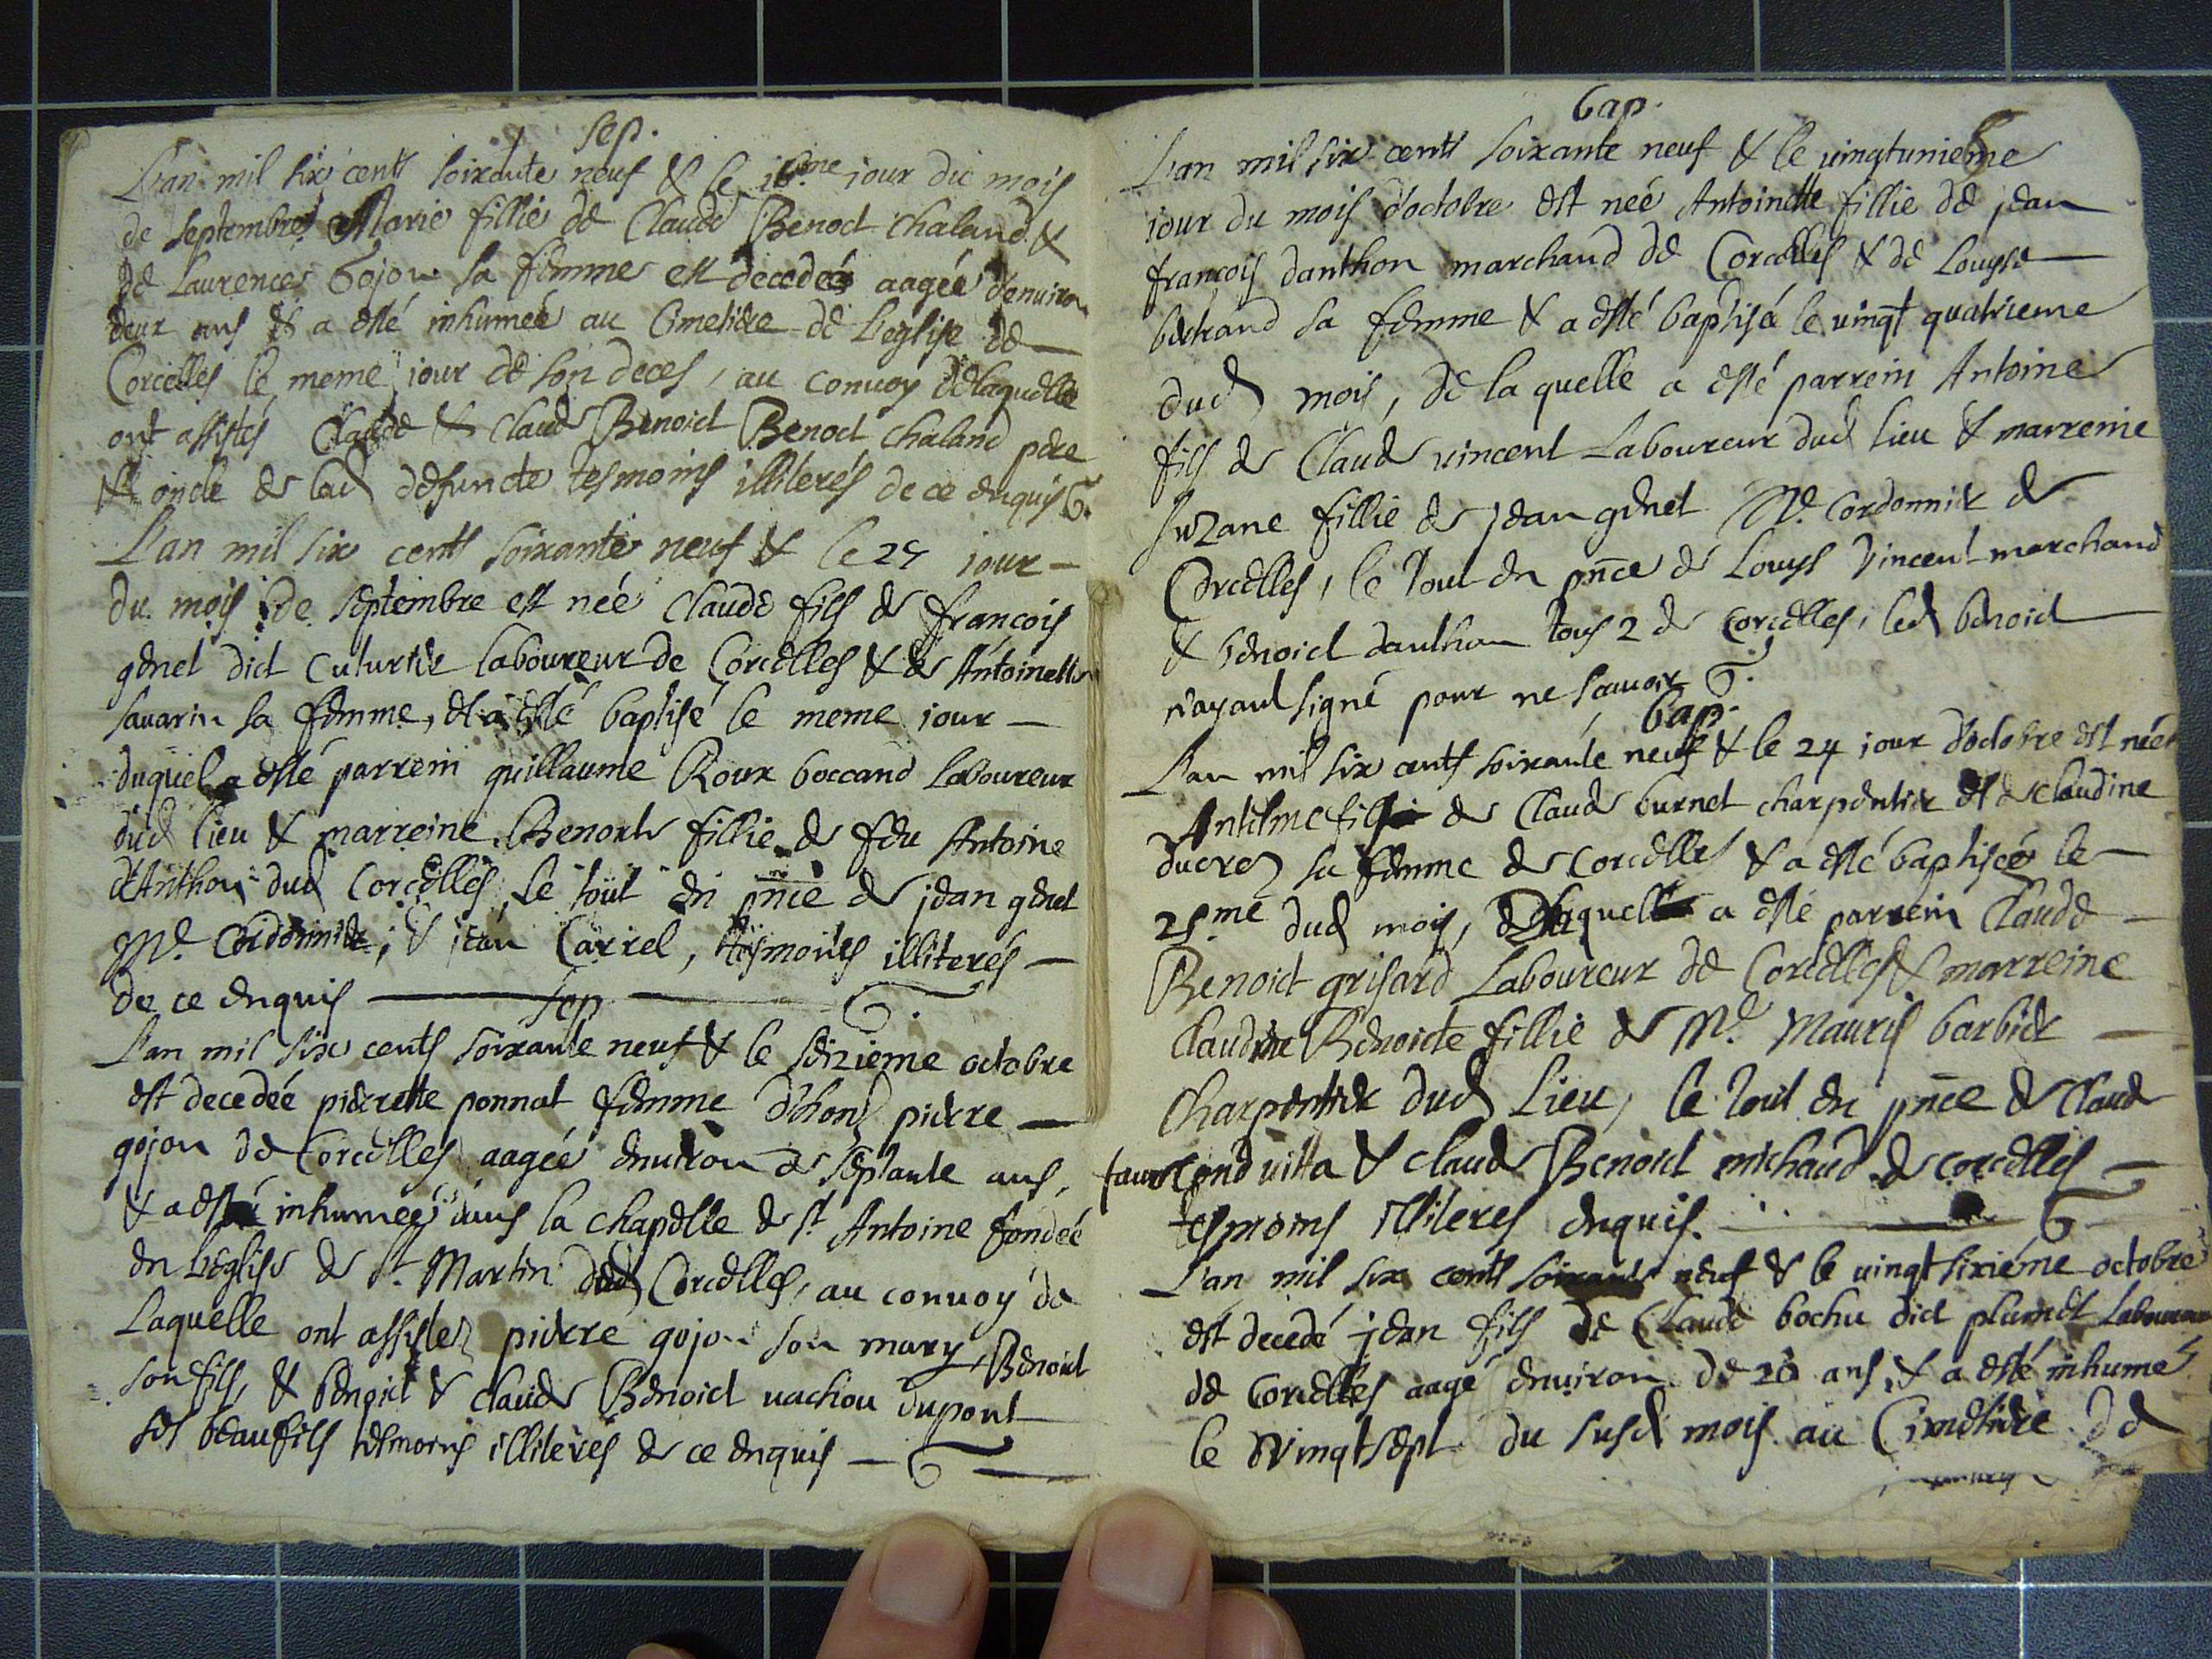 sep.
L'an mil six cents soixante neuf & le 16.me iour du mois
de septembre Marie fillie de Claude Benoct chaland &
de Laurence Gojon sa femme est decedeé aageé d'enuiron
deux ans & a esté inhumeé au Cimetiere de L'eglise de
Corcelles le meme iour de son deces, au conuoy delaquelle
ont assistés Claude & Claude Benoict Benoct chaland pere
& oncle de lad defuncte tesmoins illiterés de ce enquis
L'an mil six cents soixante neuf & le 25 iour
du mois de septembre est neé Claude fils de francois
genet dict cuturier laboureur de Corcelles & de Antoinette
sauarin sa femme, et a esté baptisé le meme iour
duquel a esté parrein guillaume Roux boccand laboureur
dud lieu & marreine Benoite fillie de feu Antoine
d'Anthon dud Corcelles, le tout en pnce de jean genet
Me. Cordonnier, & jean Carrel, tesmoins illiterés
de ce enquis
sep
L'an mil six cents soixante neuf & le seizieme octobre
est decedeé pierrette ponnat femme d'hon pierre
gojon de Corcelles aageé enuiron de septante ans,
& a esté inhumeé dans la chapelle de st Antoine fondeé
en L'eglise de st. Martin dud Corcelles, au conuoy de
Laquelle ont assistez pierre gojon son mary, Benoict
son fils, & benoict & claude Benoict uachou dupont
ses beaufils tesmoins illiterés de ce enquis
bap.
L'an mil six cents soixante neuf & le uingtunieme
iour du mois d'octobre est neé Antoinette fillie de jean
francois danthon marchand de Corcelles & de Louyse
bertrand sa femme & a esté baptisé le uingt quatrieme
dud mois, de la quelle a esté parrein Antoine
fils de Claude uincent Laboureur dud lieu & marreine
suzane fillie de jean genet Me. Cordonnier de
Corcelles, le tout en pnce de Louys Vincent marchand
& benoict danthon tous 2 de Corcelles, led benoict
n'ayant signé pour ne scauoir
bap.
L'an mil six cents soixante neuf & le 24 iour d'octobre est neé
Antelme fils de Claude burnet charpentier et de claudine
ducrez sa femme de Corcelles & a esté baptiseé le
25.me dud mois, duquel a esté parrein Claude
Benoict grisard Laboureur de Corcelles & marreine
Claudine Benoicte fillie de Me. Mauris barbier
Charpentier dud Lieu, le tout en pnce de Claude
uitta & claude Benoict michaud de corcelles
tesmoins illiteres enquis.
L'an mil six cents soixante neuf & le uingt sixiéme octobre
est decedé jean fils de Claude bochu dict plumet Laboureur
de Corcelles aagé enuiron de 20 ans, & a esté inhumé
le Vingtsept du susd mois au Cimetiere de